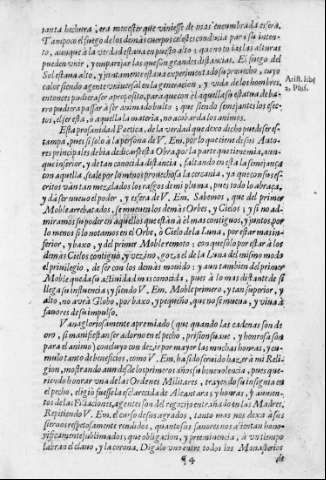 tanta hechura, era menester que viniesse de mas encumbrada esfera.
Tampoco el fuego de los demàs cuerpos celestes conducia para su intento,
aunque à la verdad estava en puesto alto; que no todas las alturas
pueden vnir, y emparejar las que son grandes distancias. El fuego del
Sol estava alto, y juntamente estava experimentado su provecho, cuyo
calor siendo agente vniversal en la generacion, y vida de los hombres,
entonces pudiera ser aproposito, para que el aquella estatua de barro
pudiera passar à ser animado bulto; que siendo semejantes los efectos,
el ser esta, ò aquella la materia, no acobarda los animos.
Arist. lib.
2. Phis.
Esta profanidad Poetica, de la verdad que devo dicho puede ser estampa,
pues si solo à la persona de V. Em. por lo que tiene de sus
principales debia dedicar esta Obra, por la parte que tiene mia, aunque
inferior, y de tan conocida distancia, saltando en esta la semejança
con aquella, escale por lo menos provechosa la cercania, ya que con sus escritos
van tan mezclados los rasgos de mi pluma, pues todo lo abraça,
y dà ser nuevo el poder, y esfera de V. Em. Sabemos, que del primer
Moble arrebatados, se mueven los demàs Orbes, y Cielos; y si no admiramos
su poder en aquellos que estàn à el mas contiguos, y juntos, por
lo menos si lo notamos en el Orbe, ò Cielo de la Luna, por estar mas inferior,
y baxo, y del primer Moble remoto; con que solo por estàr à los
demàs Cielos contiguo, y vezino, goza el de la Luna del mismo modo
el privilegio, de ser con los demàs movido: y aun tambien del primer
Moble queda su actividad mas conocida, pues à lo mas distante de si
llega su instancia, y siendo V. Em. Moble primero, y tan superior, y
alto, no avrà Globo, por baxo, y pequeño, que no se mueva, y viva à
favores de su impulso.
Vanagloriosamente apremiado (que quando las cadenas son de
oro, si manifiestan ser adorno en el pecho, prision suave, y honrosa son
para el animo) concluyo con dezir, por mayor las muchas honras, y cumulo
tanto de beneficios, como V. Em. ha sido servido hazer à mi Religion,
mostrando aun desde los primeros años su benevolencia, pues queriendo
honrar vna de las Ordenes Militares, trayendo su insignia en
el pecho, eligiò fuesse la esclarecida de Alcantara; y honras, y aumentos
de las Filiaciones, agentes son del regozijo entrañado en las Madres.
Repitiendo V. Em. el curso de sus agrados, tanto mas nos dexa à sus
siervos respetosamente rendidos, quanto sus favores nos alientan honorificamente
sublimados; que obligacion, y preeminencia, à vn tiempo
labran el clavo, y la corona. Digalo vno entre todos los Monasterios
¶ 4
de